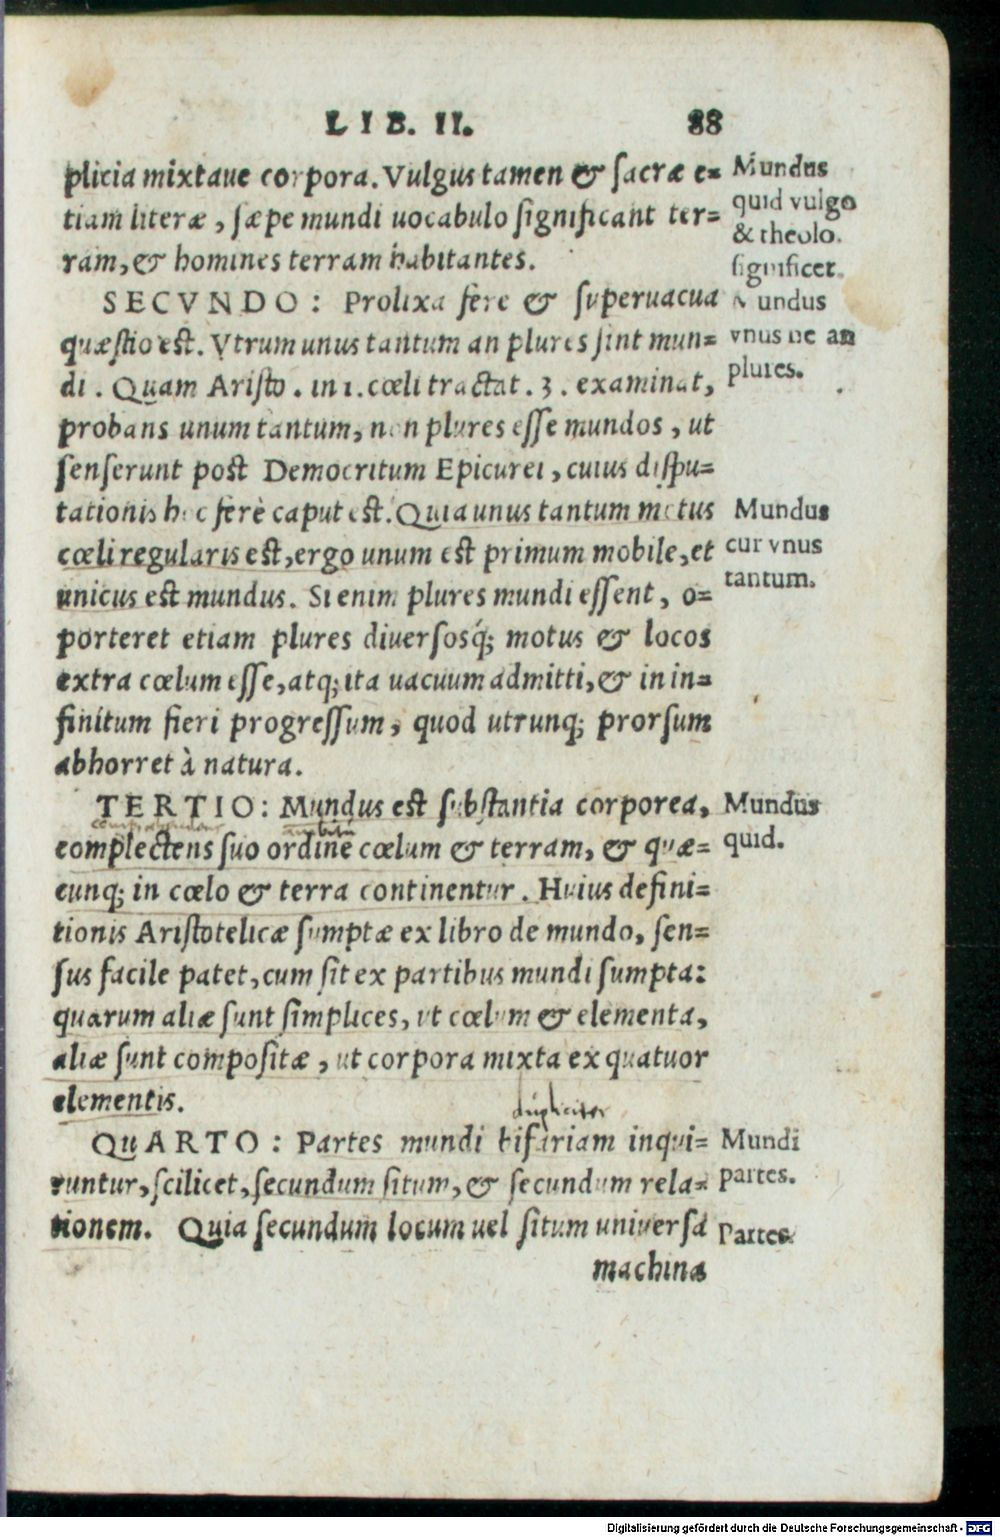 LIB. II. 88
plicia mixtaue corpora. Vulgus tamen & sacræ e=
tiam literæ, sæpe mundi uocabulo significant ter=
ram, & homines terram habitantes.
Mundus
quid vulgo
& theolo.
significet.
SECVNDO: Prolixa fere & superuacua
quæstio est. Vtrum unus tantum an plures sint mun=
di. Quam Aristo. in 1. cœli tractat. 3. examinat,
probans unum tantum, non plures esse mundos, ut
senserunt post Democritum Epicurei, cuius dispu=
tationis hoc ferè caput est. Quia unus tantum motus
cœli regularis est, ergo unum est primum mobile, et
unicus est mundus. Si enim plures mundi essent, o=
porteret etiam plures diuersosq́; motus & locos
extra cœlum esse, atq; ita uacuum admitti, & in in=
finitum fieri progressum, quod utrunq; prorsum
abhorret à natura.
Mundus
vnus ne an
plures.
Mundus
cur vnus
tantum.
TERTIO: Mundus est substantia corporea,
complectens suo ordine cœlum & terram, & quæ=
cunq; in cœlo & terra continentur. Huius defini=
tionis Aristotelicæ sumptæ ex libro de mundo, sen=
sus facile patet, cum sit ex partibus mundi sumpta:
quarum aliæ sunt simplices, ut cœlum & elementa,
aliæ sunt compositæ, ut corpora mixta ex quatuor
elementis.
Mundus
quid.
dupliciter
QuARTO: Partes mundi bifariam inqui=
runtur, scilicet, secundum situm, & secundum rela=
tionem. Quia secundum locum uel situm uniuersa
machina
Mundi
partes.
Partes
Digitalisierung gefördert durch die Deutsche Forschungsgemeinschaft - DFG